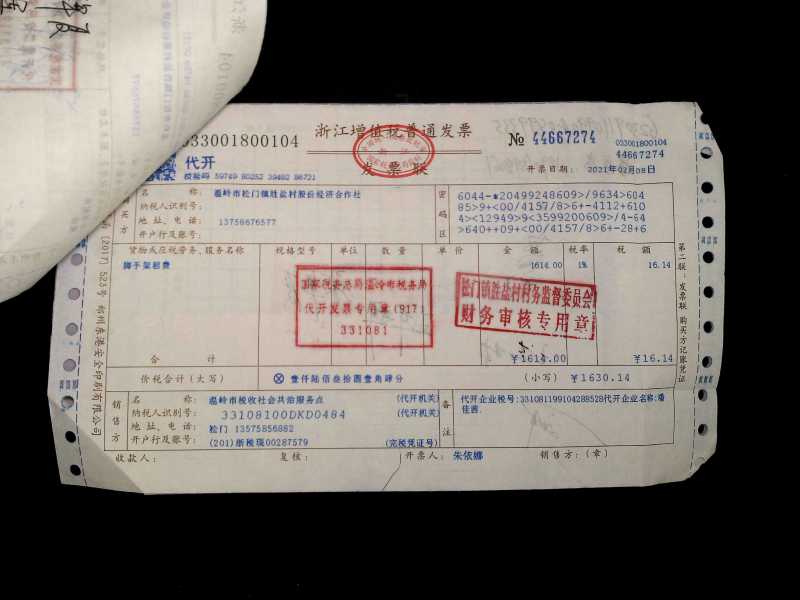 033001800104
浙江增值税普通发票
发票联
№ 44667274
033001800104
44667274
代开
校验码 59749 80252 39482 86721
开票日期: 2021年02月08日
购买方
名称: 温岭市松门镇胜盐村股份经济合作社
纳税人识别号:
地址、电话: 13758676577
开户行及账号:
密码区
6044-*20499248609>/9634>604
85>9+<00/4157/8>6+-4112+610
4><12949>9<3599200609>/4-64
>640++09+<00/4157/8>6+-28+6
货物或应税劳务、服务名称 规格型号 单位 数量 单价 金额 税率 税额
脚手架租费 1614.00 1% 16.14
国家税务总局温岭市税务局
代开发票专用章(917)
331081
松门镇胜盐村村务监督委员会
财务审核专用章
合计 ¥1614.00 ¥16.14
价税合计(大写) ⊗ 壹仟陆佰叁拾圆壹角肆分 (小写) ¥1630.14
销售方
名称: 温岭市税收社会共治服务点 (代开机关)
纳税人识别号: 33108100DKD0484 (代开机关)
地址、电话: 松门 13575856882
开户行及账号: (201)浙税琐00287579 (完税凭证号)
备注
代开企业税号:331081199104288528代开企业名称:潘
佳茜
收款人: 复核: 开票人: 朱依娜 销售方:(章)
第二联:发票联 购买方记账凭证
(2017)523号 郑州东港安全印刷有限公司